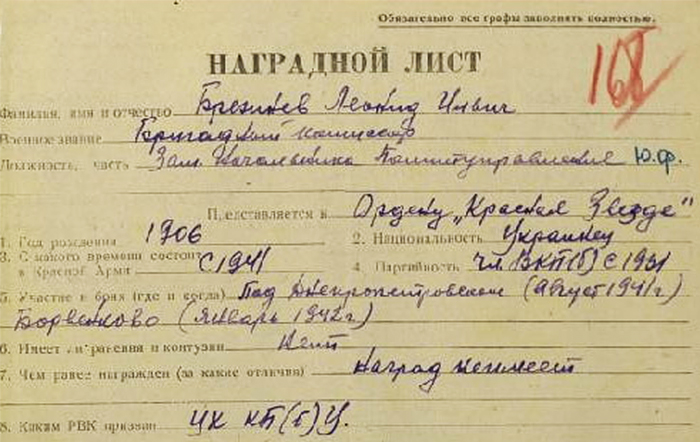 Обязательно все графы заполнять полностью.
168
НАГРАДНОЙ ЛИСТ
Фамилия, имя и отчество Брежнев Леонид Ильич
Военное звание Бригадный комиссар
Должность, часть Зам. Начальника Политуправления Ю.Ф.
Представляется к Ордену „Красная Звезда"
1. Год рождения 1906
2. Национальность Украинец
3. С какого времени состоит в Красной Армии с 1941
4. Партийность чл ВКП(б) с 1931
5. Участие в боях (где и когда) Под Днепропетровском (август 1941 г)
Борвенково (Январь 1942 г)
6. Имеет ли ранения и контузии Нет
7. Чем ранее награжден (за какие отличия) Наград не имеет
8. Каким РВК призван ЦК КП(б)У.